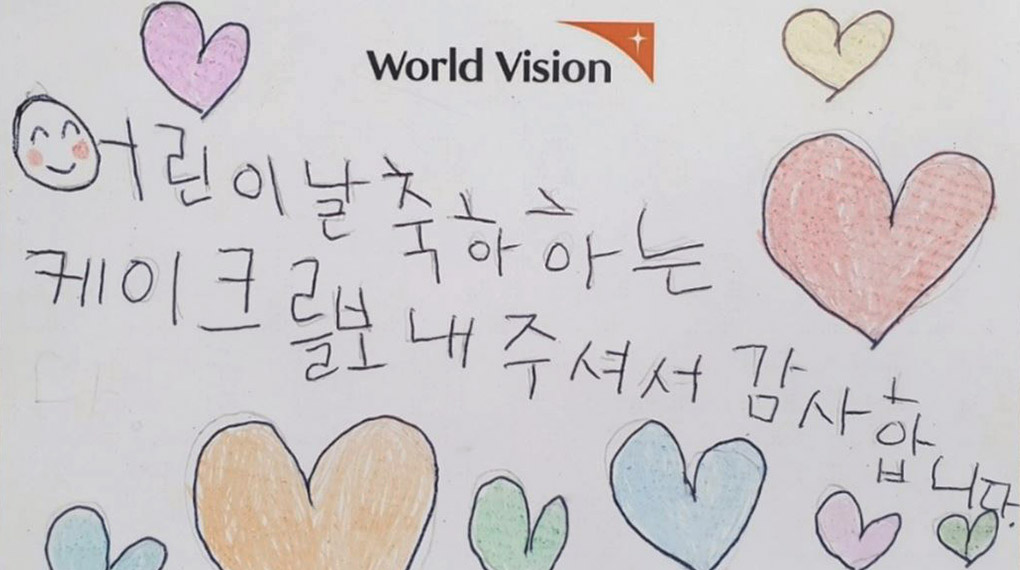 World Vision
어린이날 축하하는
케이크를 보내주셔서 감사합니다.